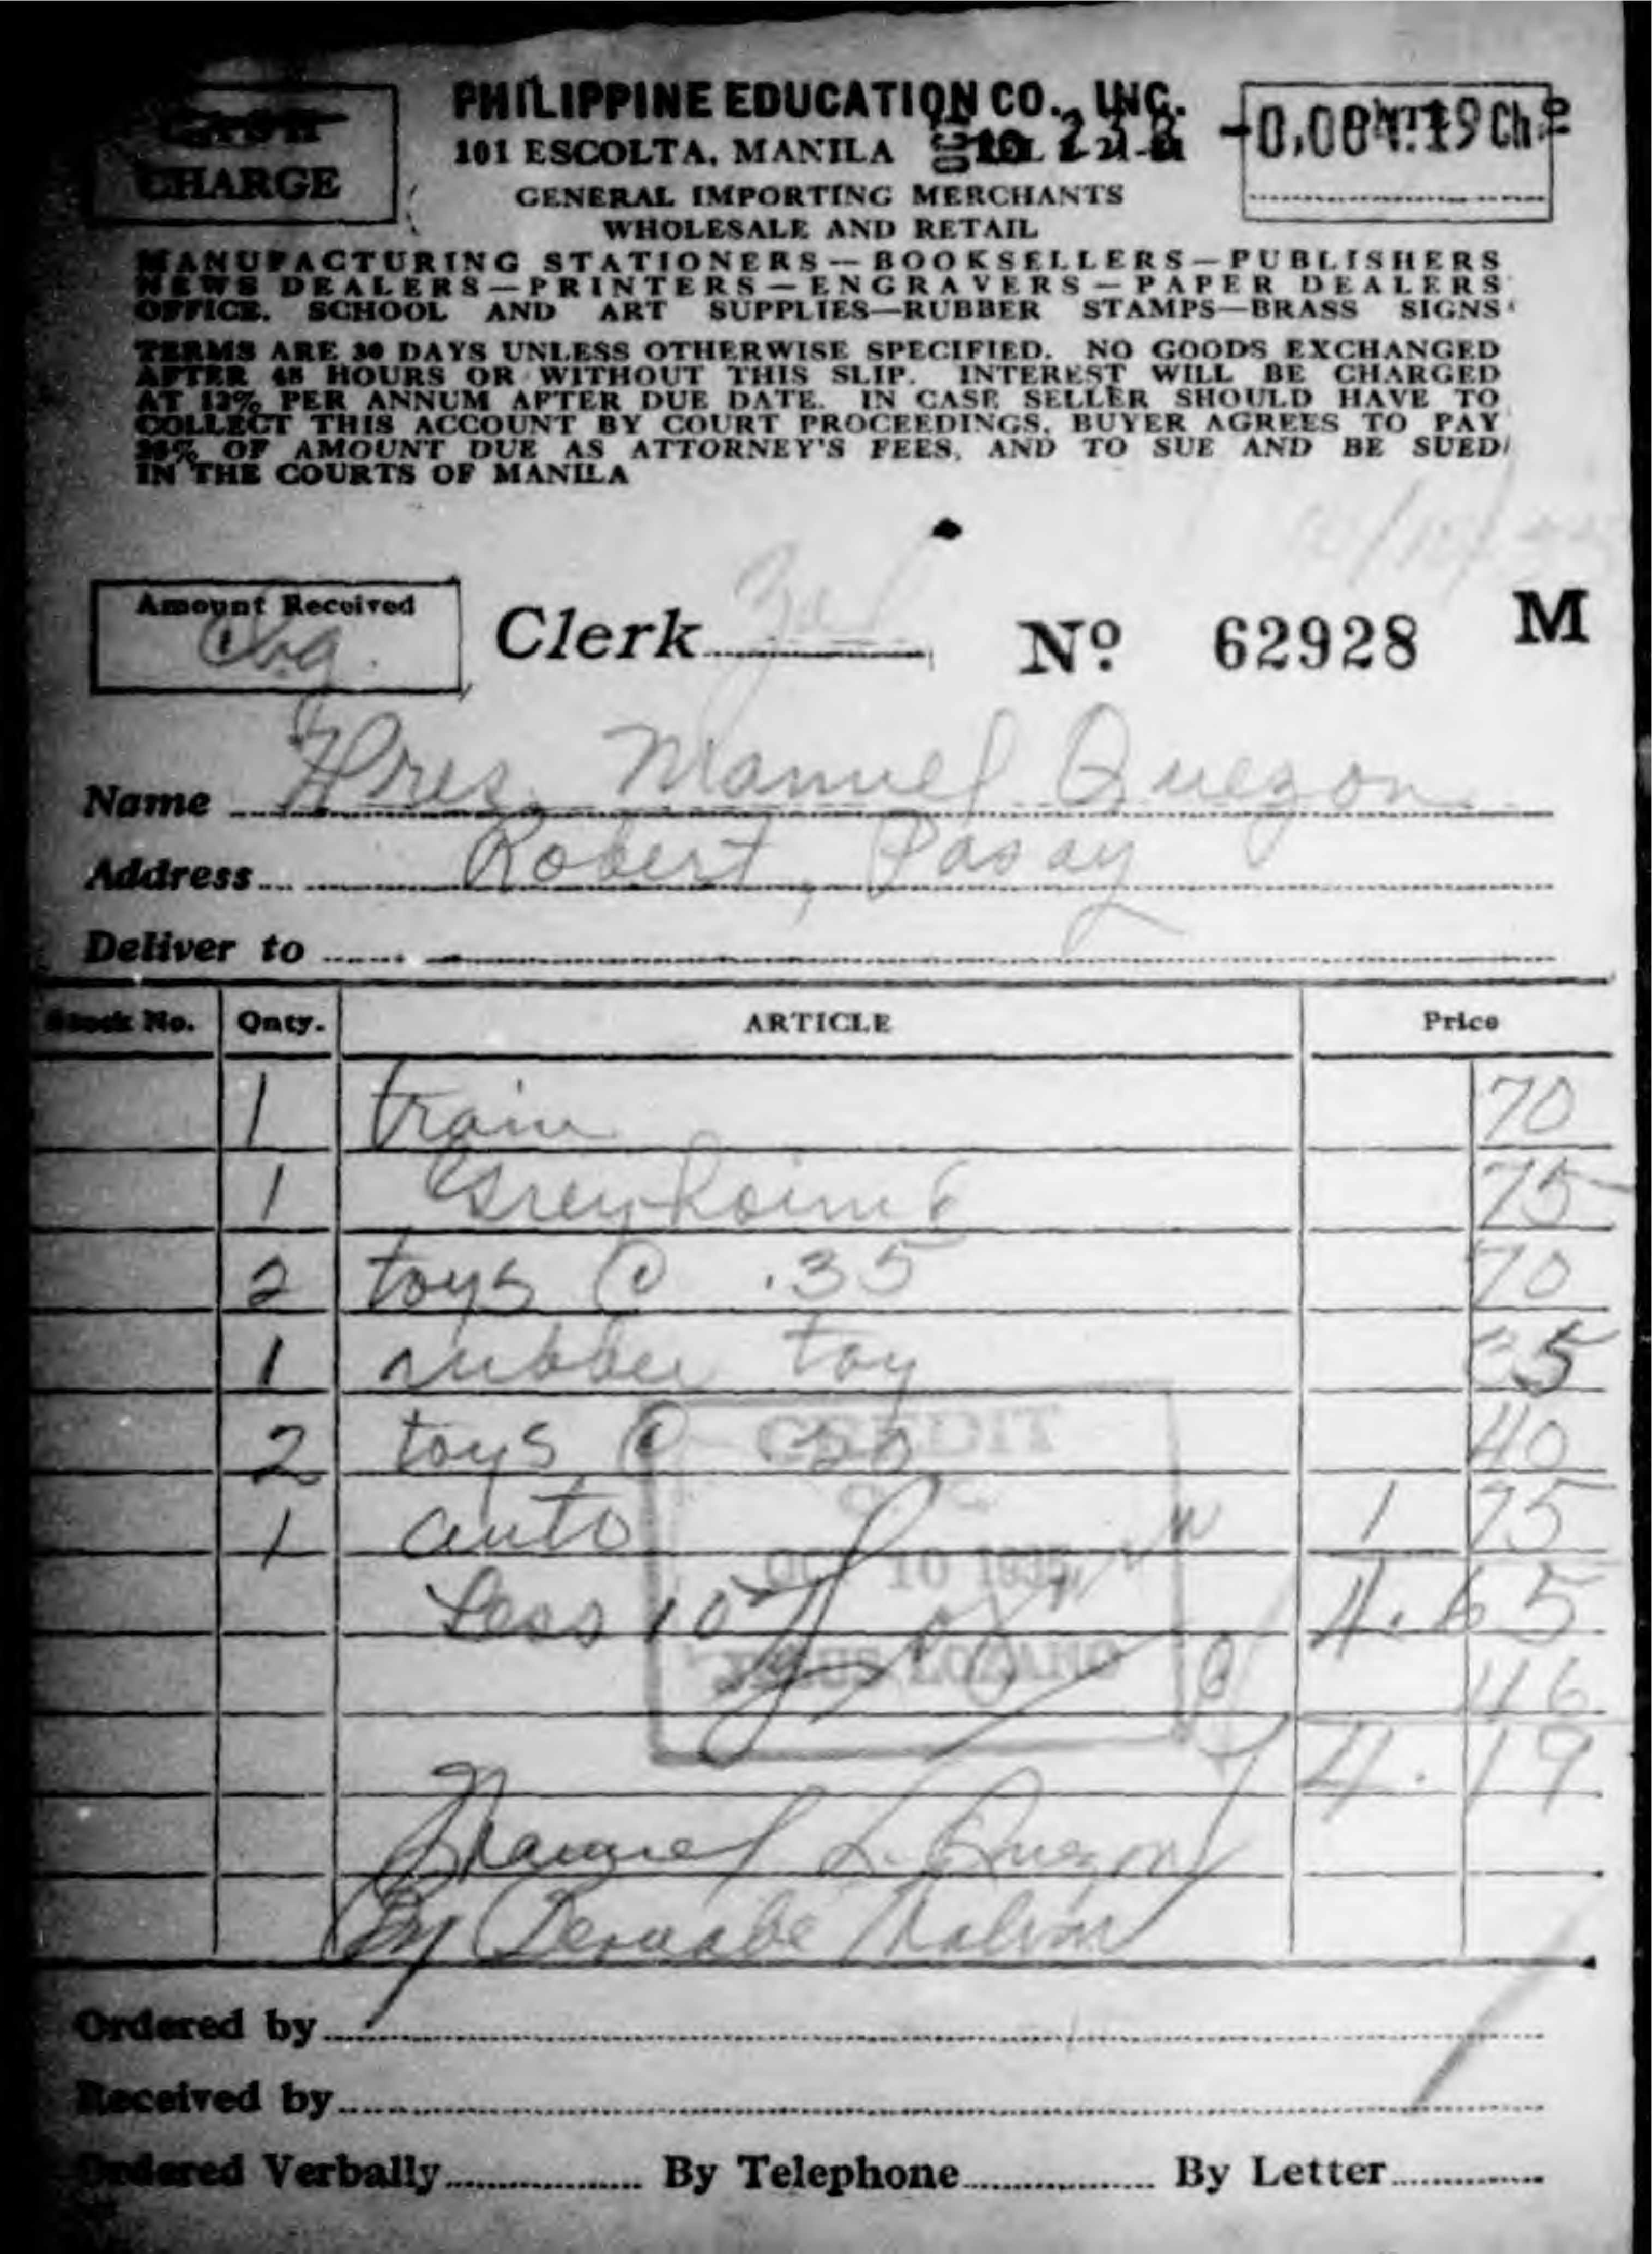 CASH
CHARGE
PHILIPPINE EDUCATION CO., INC.
101 ESCOLTA, MANILA
GENERAL IMPORTING MERCHANTS
WHOLESALE AND RETAIL
MANUFACTURING STATIONERS—BOOKSELLERS—PUBLISHERS
NEWS DEALERS—PRINTERS—ENGRAVERS—PAPER DEALERS
OFFICE, SCHOOL AND ART SUPPLIES—RUBBER STAMPS—BRASS SIGNS
TERMS ARE 30 DAYS UNLESS OTHERWISE SPECIFIED. NO GOODS EXCHANGED
AFTER 48 HOURS OR WITHOUT THIS SLIP. INTEREST WILL BE CHARGED
AT 12% PER ANNUM AFTER DUE DATE. IN CASE SELLER SHOULD HAVE TO
COLLECT THIS ACCOUNT BY COURT PROCEEDINGS, BUYER AGREES TO PAY
OF AMOUNT DUE AS ATTORNEY'S FEES, AND TO SUE AND BE SUED
IN THE COURTS OF MANILA
Amount Received
Chg.
Clerk
Nº 62928 M
Name Pres. Manuel Quezon
Address Robert, Pasay
Deliver to
Stock No. Qnty. ARTICLE Price
1 train 70
1 Greyhound 75
2 toys @ .35 70
1 rubber toy 35
2 toys @ 20 40
1 auto 1 75
Less 10% 4.65
46
4.19
CREDIT
O.K.
OCT 10 1935
JESUS LOZANO
Manuel L. Quezon
By Bernabe Malvar
Ordered by
Received by
Ordered Verbally By Telephone By Letter